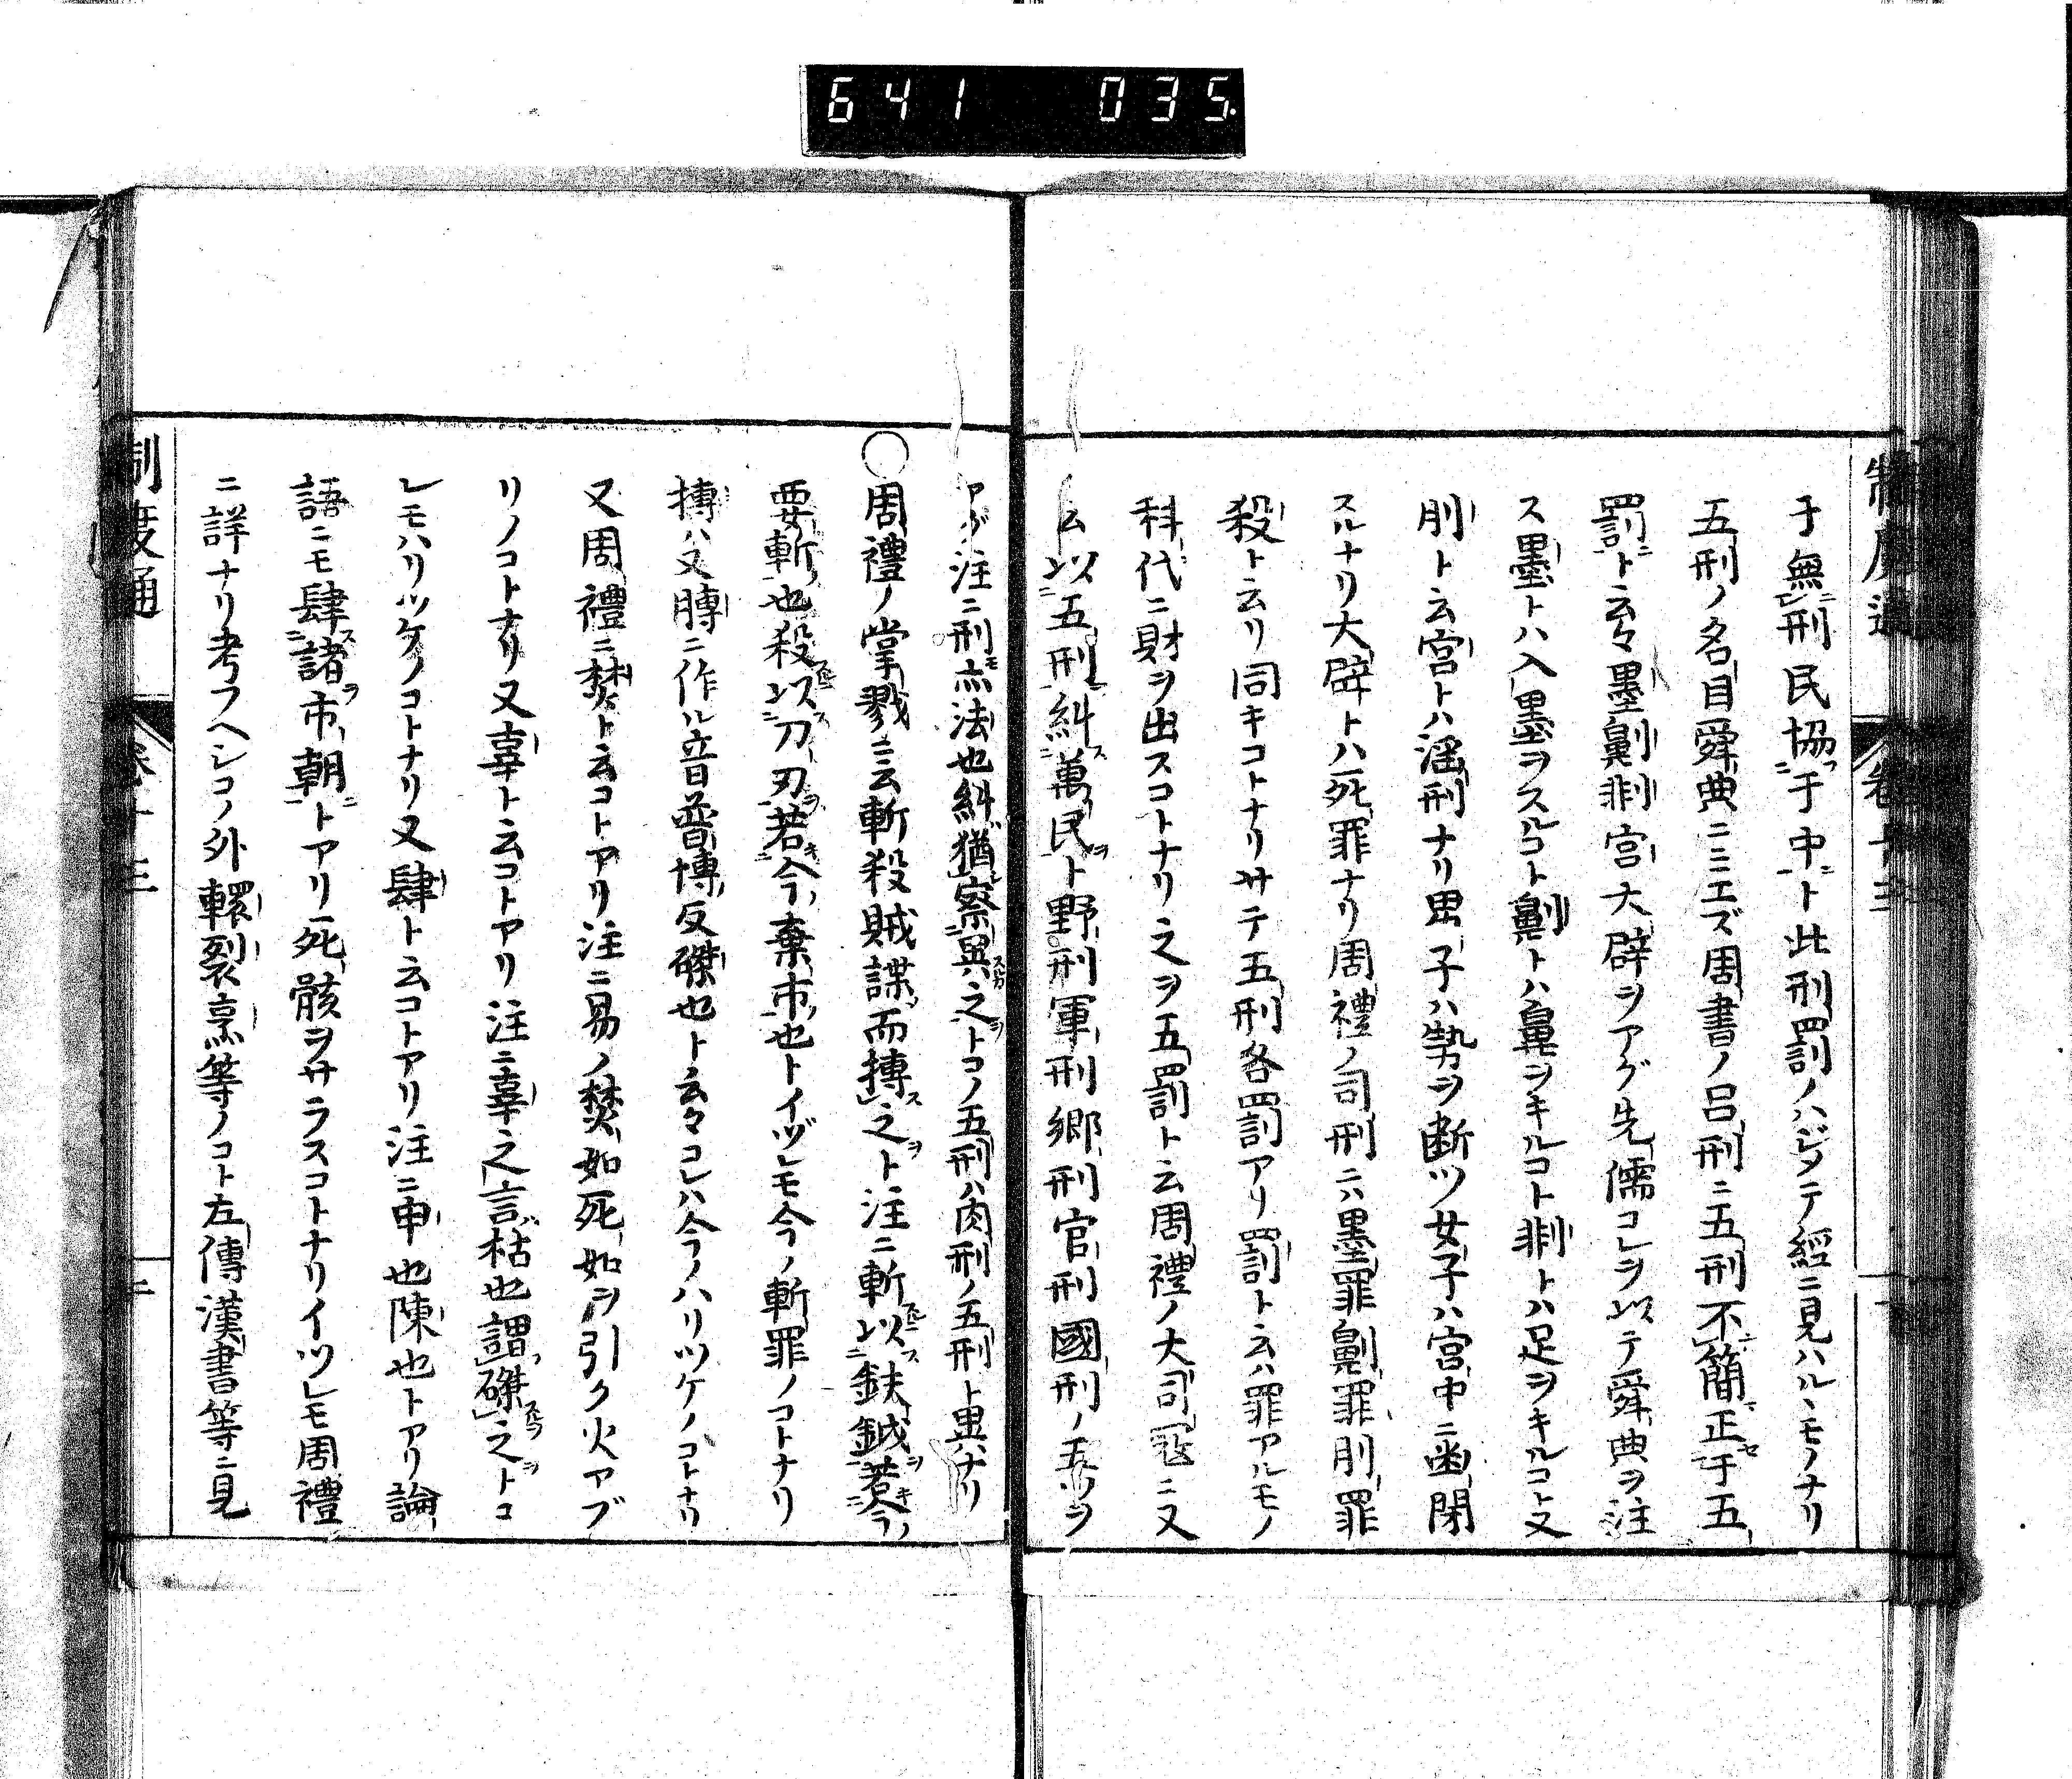 641 035.
制度通 卷十三
于無刑民協于中ト此刑罰ノハジメテ經ニ見ハルヽモノナリ
五刑ノ名目舜典ニミエズ周書ノ呂刑ニ五刑不簡正于五
罰ト云々墨劓剕宮大辟ヲアグ先儒コレヲ以テ舜典ヲ注
ス墨トハ入墨ヲスルコト劓トハ鼻ヲキルコト剕トハ足ヲキルコト又
刖ト云宮トハ淫刑ナリ男子ハ勢ヲ断ツ女子ハ宮中ニ幽閉
スルナリ大辟トハ死罪ナリ周禮ノ司刑ニハ墨罪劓罪刖罪
殺ト云リ同キコトナリサテ五刑各罰アリ罰ト云ハ罪アルモノ
科代ニ財ヲ出スコトナリ之ヲ五罰ト云周禮ノ大司寇ニ又
云以五刑糾萬民ト野刑軍刑郷刑官刑國刑ノ五ツヲ
アグ注ニ刑亦法也糾猶察異之トコノ五刑ハ肉刑ノ五刑ト異ナリ
○周禮ノ掌戮ニ云斬殺賊諜而搏之ト注ニ斬以鈇鉞若今ノ
要斬也殺以刀刃若今棄市也トイヅレモ今ノ斬罪ノコトナリ
搏ハ又膊ニ作ル音普博反磔也ト云々コレハ今ノハリツケノコトナリ
又周禮ニ焚ト云コトアリ注ニ易ノ焚如死如ヲ引ク火アブ
リノコトナリ又辜ト云コトアリ注ニ辜之言枯也謂磔之トコ
レモハリツケノコトナリ又肆ト云コトアリ注ニ申也陳也トアリ論
語ニモ肆諸市朝トアリ死骸ヲサラスコトナリイツレモ周禮
ニ詳ナリ考フヘシコノ外轘裂烹等ノコト左傳漢書等ニ見
制度通 卷十三 二